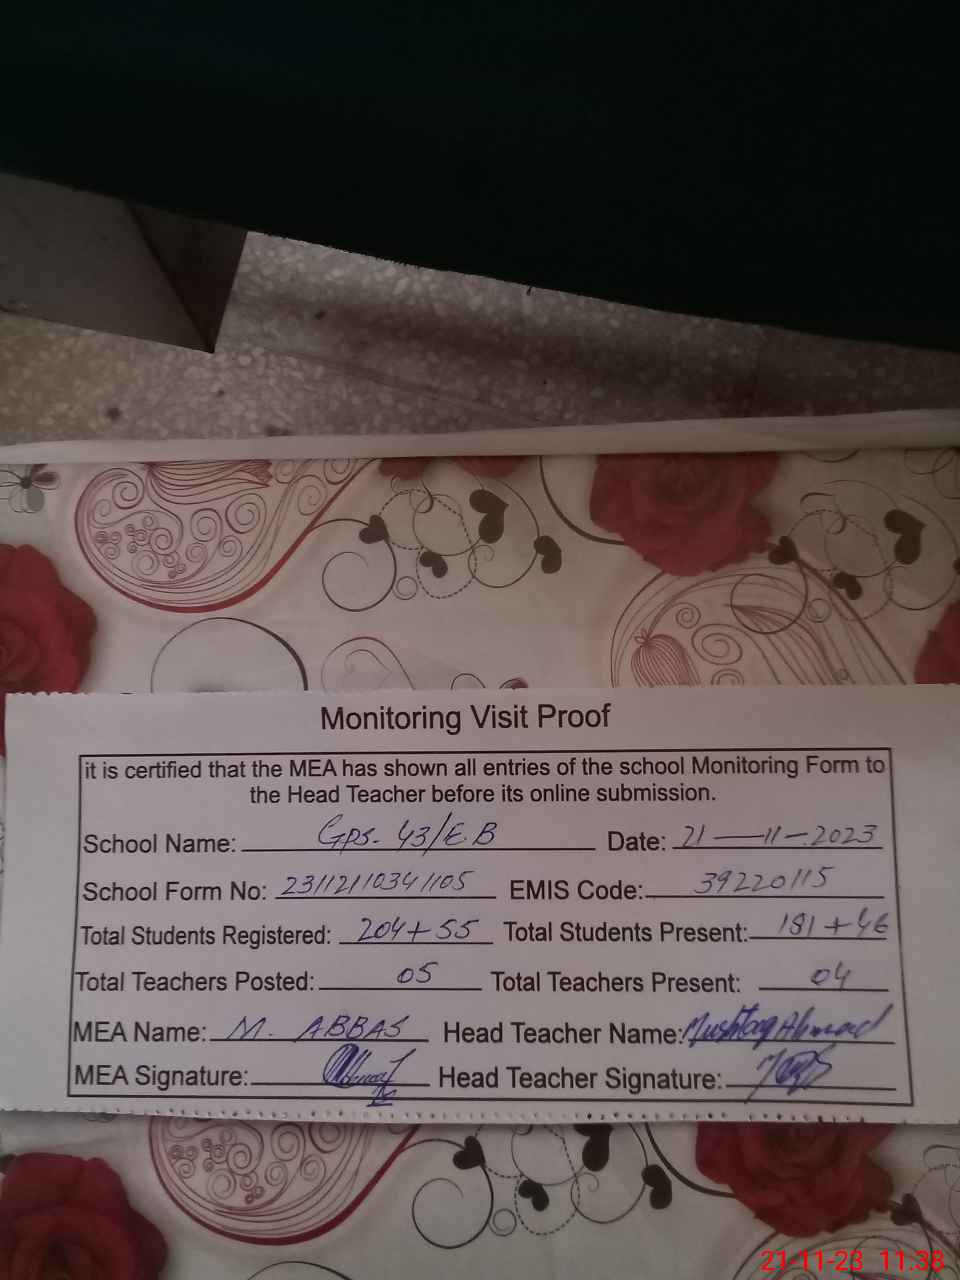 Monitoring Visit Proof
it is certified that the MEA has shown all entries of the school Monitoring Form to
the Head Teacher before its online submission.
School Name: Gps. 43/E B Date: 21-11-2023
School Form No: 23112110341105 EMIS Code: 39220115
Total Students Registered: 204+55 Total Students Present: 181+46
Total Teachers Posted: 05 Total Teachers Present: 04
MEA Name: M. ABBAS Head Teacher Name: Mushtaq Ahmad
MEA Signature: Head Teacher Signature:
21-11-23 11:38